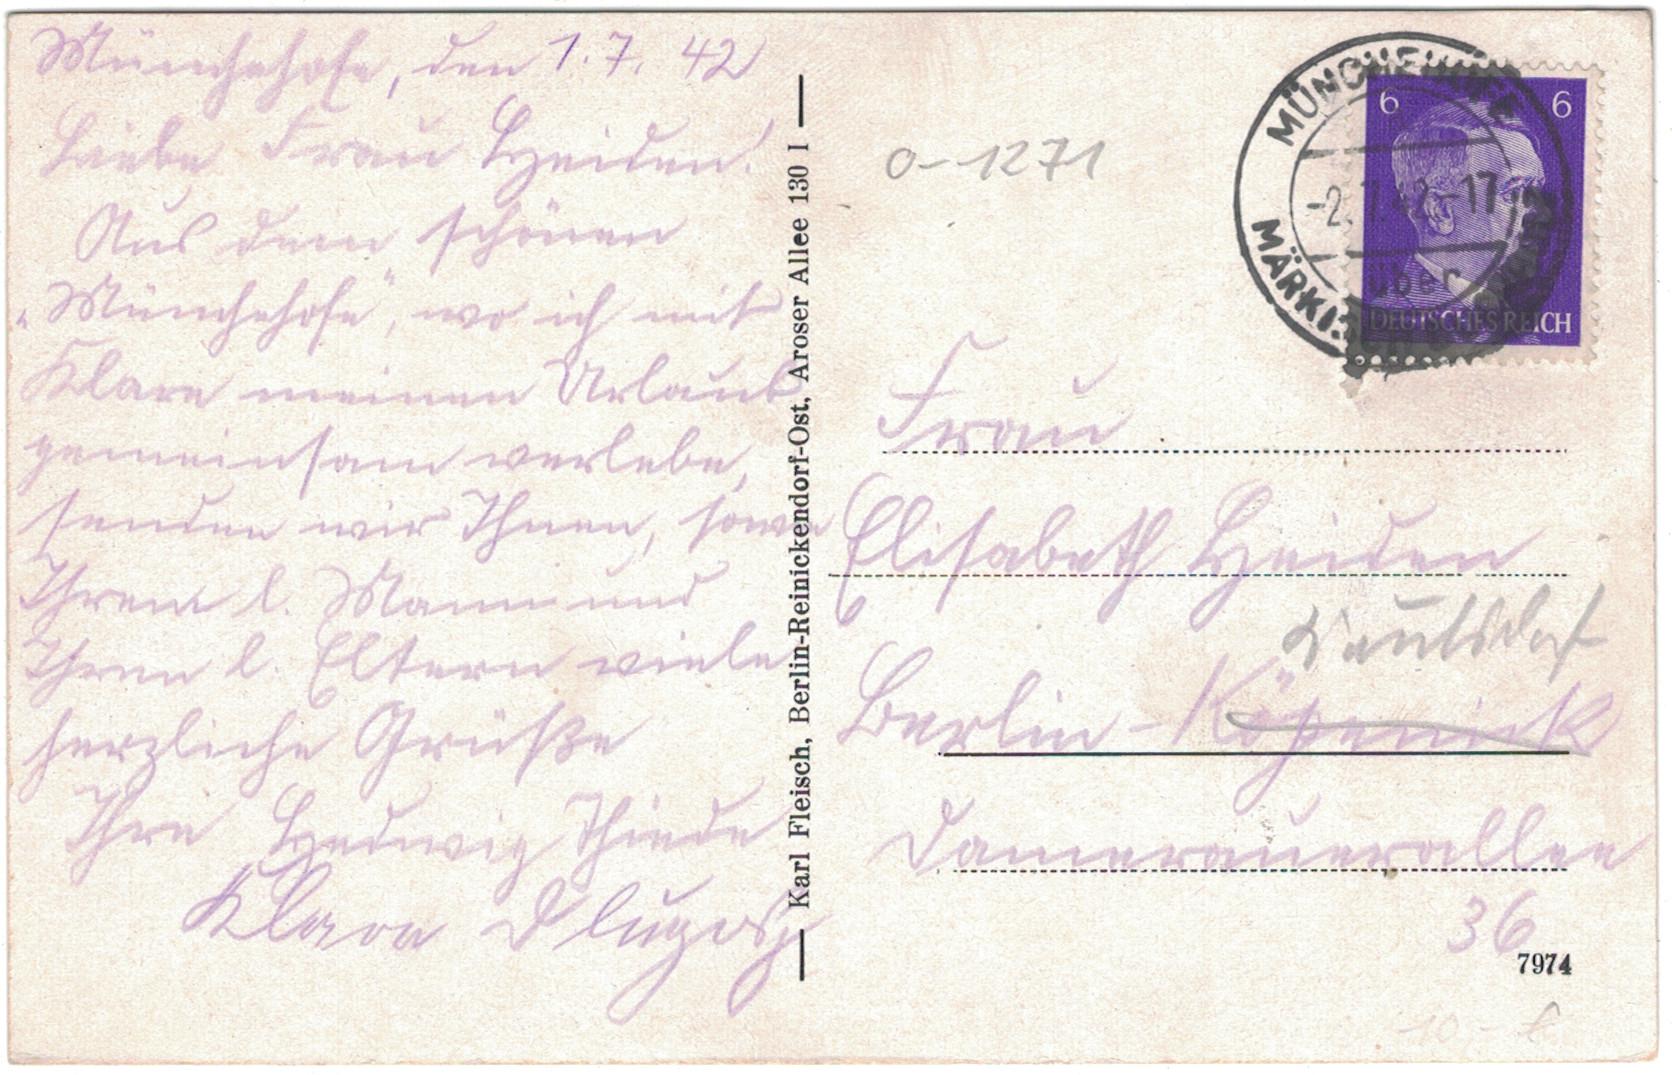 Münchehofe, den 1.7.42
Liebe Frau Heiden!
Aus dem schönen
„Münchehofe", wo ich mit
Klare meinen Urlaub
gemeinsam verlebe,
senden wir Ihnen, sowie
Ihrem l. Mann und
Ihren l. Eltern viele
herzliche Grüße
Ihre Hedwig Thiede
Klara
Karl Fleisch, Berlin-Reinickendorf-Ost, Aroser Allee 130 I
0-1271
MÜNCHEHOFE
-2.7.42-17
über
MÄRKISCH
6 6
DEUTSCHES REICH
Frau
Elisabeth Heiden
Kaulsdorf
Berlin-Köpenick
Damerauerallee
36
7974
10,- €